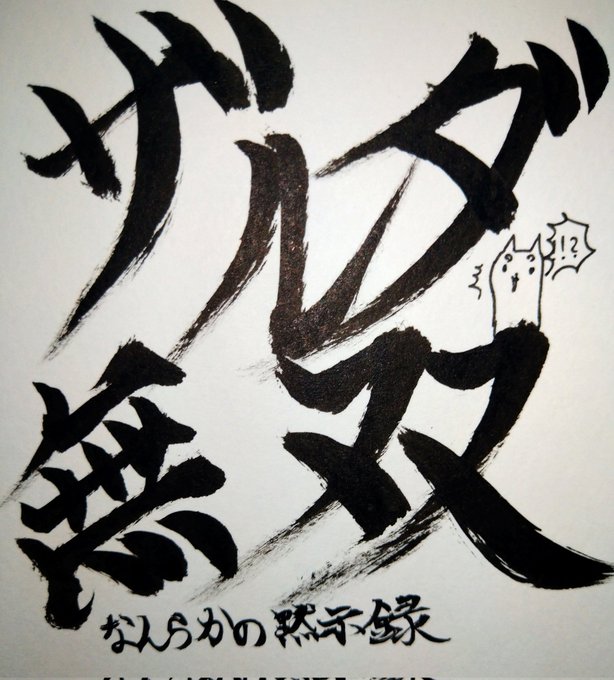 ザルダ
!?
無双
なんらかの黙示録